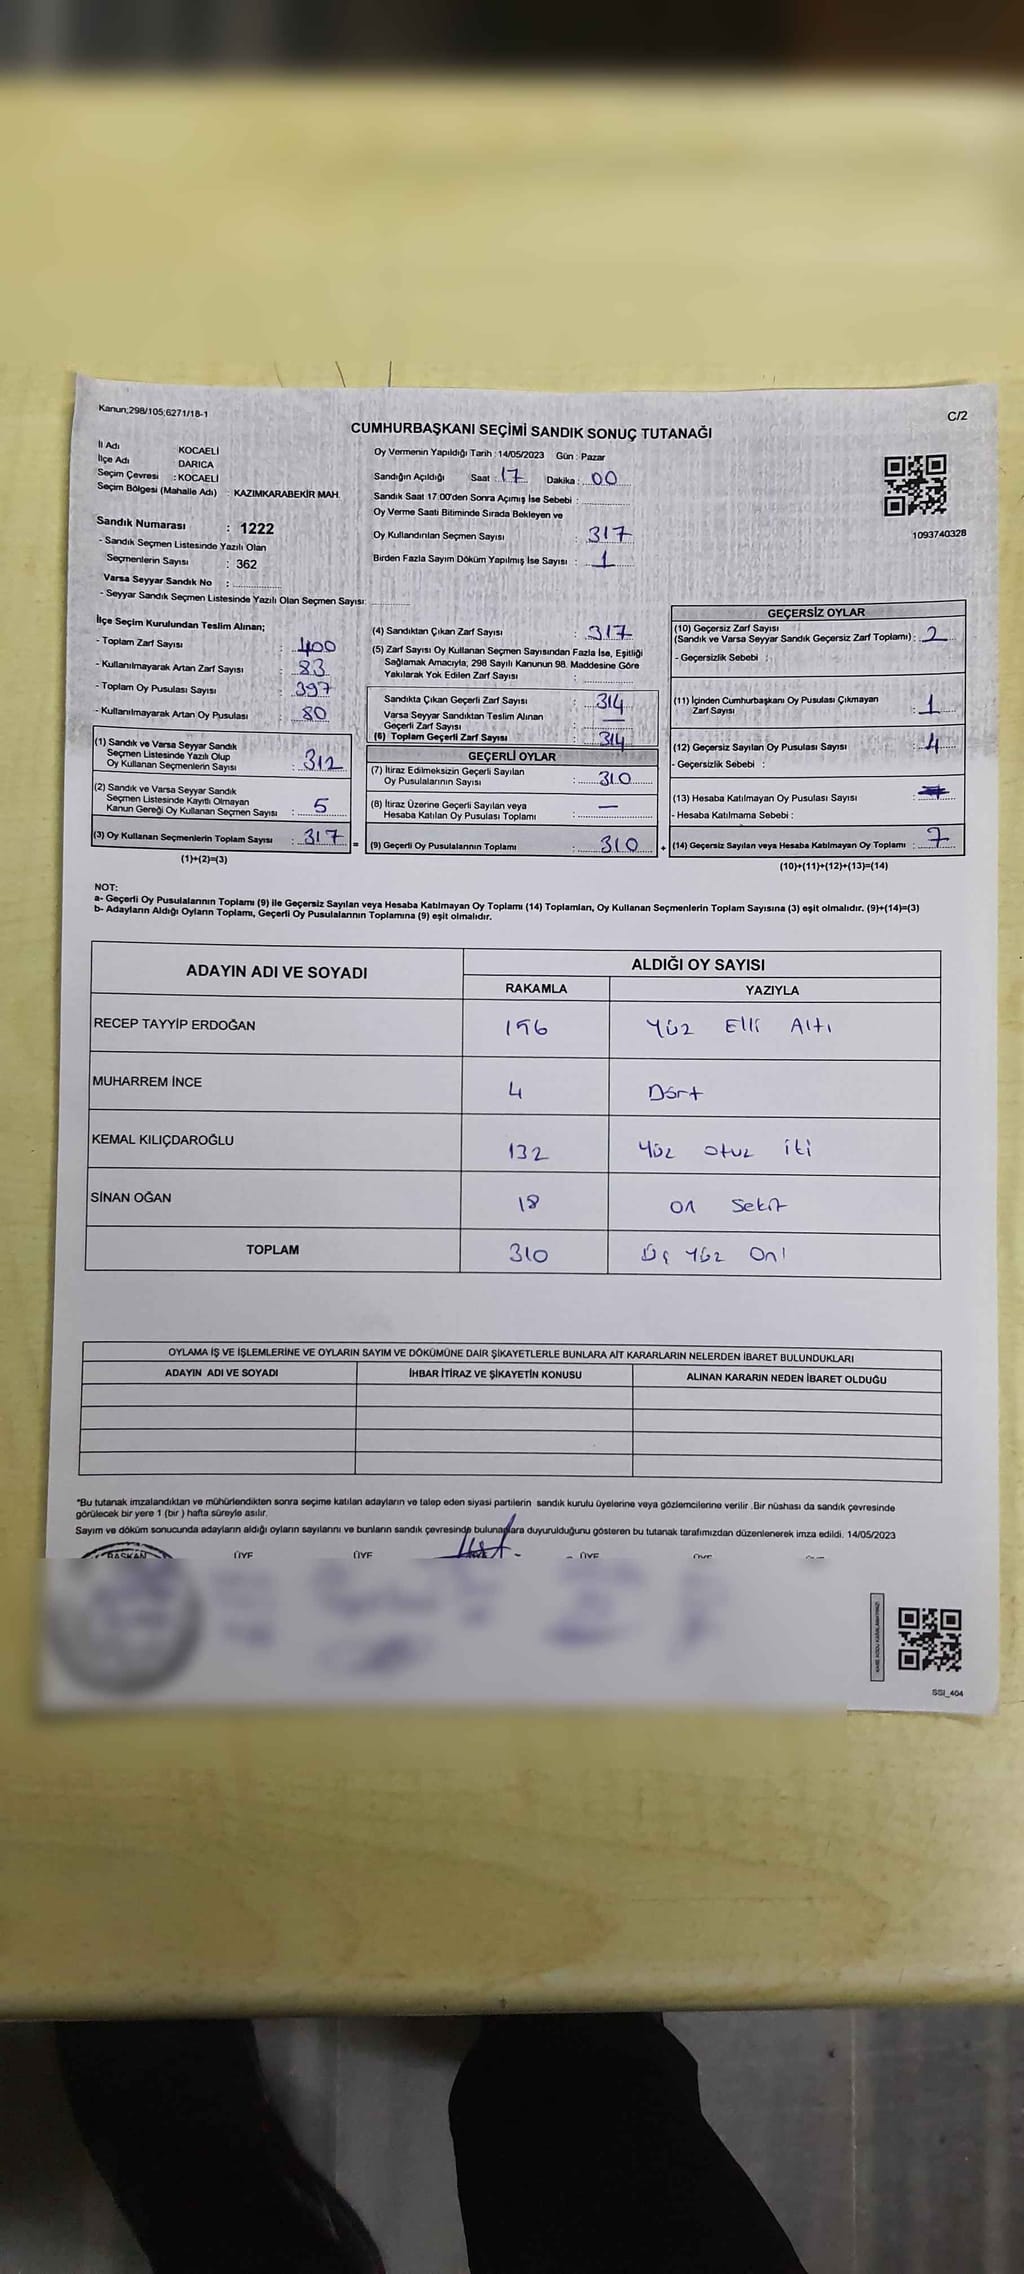 Kanun;298/105;6271/18-1
C/2
CUMHURBAŞKANI SEÇİMİ SANDIK SONUÇ TUTANAĞI
İl Adı KOCAELİ
İlçe Adı DARICA
Seçim Çevresi : KOCAELİ
Seçim Bölgesi (Mahalle Adı) : KAZIMKARABEKİR MAH.
Sandık Numarası : 1222
- Sandık Seçmen Listesinde Yazılı Olan
Seçmenlerin Sayısı : 362
Varsa Seyyar Sandık No :
- Seyyar Sandık Seçmen Listesinde Yazılı Olan Seçmen Sayısı:
Oy Vermenin Yapıldığı Tarih : 14/05/2023 Gün : Pazar
Sandığın Açıldığı Saat : 17 Dakika : 00
Sandık Saat 17:00'den Sonra Açımış İse Sebebi :
Oy Verme Saati Bitiminde Sırada Bekleyen ve
Oy Kullandırılan Seçmen Sayısı : 317
Birden Fazla Sayım Döküm Yapılmış İse Sayısı : 1
1093740328
İlçe Seçim Kurulundan Teslim Alınan;
- Toplam Zarf Sayısı : 400
- Kullanılmayarak Artan Zarf Sayısı : 83
- Toplam Oy Pusulası Sayısı : 397
- Kullanılmayarak Artan Oy Pusulası : 80
(1) Sandık ve Varsa Seyyar Sandık
Seçmen Listesinde Yazılı Olup
Oy Kullanan Seçmenlerin Sayısı : 312
(2) Sandık ve Varsa Seyyar Sandık
Seçmen Listesinde Kayıtlı Olmayan
Kanun Gereği Oy Kullanan Seçmen Sayısı : 5
(3) Oy Kullanan Seçmenlerin Toplam Sayısı : 317 =
(1)+(2)=(3)
(4) Sandıktan Çıkan Zarf Sayısı : 317
(5) Zarf Sayısı Oy Kullanan Seçmen Sayısından Fazla İse, Eşitliği
Sağlamak Amacıyla, 298 Sayılı Kanunun 98. Maddesine Göre
Yakılarak Yok Edilen Zarf Sayısı :
Sandıkta Çıkan Geçerli Zarf Sayısı : 314
Varsa Seyyar Sandıktan Teslim Alınan
Geçerli Zarf Sayısı : —
(6) Toplam Geçerli Zarf Sayısı : 314
GEÇERLİ OYLAR
(7) İtiraz Edilmeksizin Geçerli Sayılan
Oy Pusulalarının Sayısı : 310
(8) İtiraz Üzerine Geçerli Sayılan veya
Hesaba Katılan Oy Pusulası Toplamı : —
(9) Geçerli Oy Pusulalarının Toplamı : 310 +
GEÇERSİZ OYLAR
(10) Geçersiz Zarf Sayısı
(Sandık ve Varsa Seyyar Sandık Geçersiz Zarf Toplamı) : 2
- Geçersizlik Sebebi :
(11) İçinden Cumhurbaşkanı Oy Pusulası Çıkmayan
Zarf Sayısı : 1
(12) Geçersiz Sayılan Oy Pusulası Sayısı : 4
- Geçersizlik Sebebi :
(13) Hesaba Katılmayan Oy Pusulası Sayısı :
- Hesaba Katılmama Sebebi :
(14) Geçersiz Sayılan veya Hesaba Katılmayan Oy Toplamı : 7
(10)+(11)+(12)+(13)=(14)
NOT:
a- Geçerli Oy Pusulalarının Toplamı (9) ile Geçersiz Sayılan veya Hesaba Katılmayan Oy Toplamı (14) Toplamları, Oy Kullanan Seçmenlerin Toplam Sayısına (3) eşit olmalıdır. (9)+(14)=(3)
b- Adayların Aldığı Oyların Toplamı, Geçerli Oy Pusulalarının Toplamına (9) eşit olmalıdır.
ADAYIN ADI VE SOYADI ALDIĞI OY SAYISI
RAKAMLA YAZIYLA
RECEP TAYYİP ERDOĞAN 156 Yüz Elli Altı
MUHARREM İNCE 4 Dört
KEMAL KILIÇDAROĞLU 132 Yüz otuz iki
SİNAN OĞAN 18 on Sekiz
TOPLAM 310 Üç Yüz On
OYLAMA İŞ VE İŞLEMLERİNE VE OYLARIN SAYIM VE DÖKÜMÜNE DAİR ŞİKAYETLERLE BUNLARA AİT KARARLARIN NELERDEN İBARET BULUNDUKLARI
ADAYIN ADI VE SOYADI İHBAR İTİRAZ VE ŞİKAYETİN KONUSU ALINAN KARARIN NEDEN İBARET OLDUĞU
*Bu tutanak imzalandıktan ve mühürlendikten sonra seçime katılan adayların ve talep eden siyasi partilerin sandık kurulu üyelerine veya gözlemcilerine verilir .Bir nüshası da sandık çevresinde
görülecek bir yere 1 (bir ) hafta süreyle asılır.
Sayım ve döküm sonucunda adayların aldığı oyların sayılarını ve bunların sandık çevresinde bulunanlara duyurulduğunu gösteren bu tutanak tarafımızdan düzenlenerek imza edildi. 14/05/2023
BAŞKAN ÜYE ÜYE ÜYE ÜYE
SSI_404